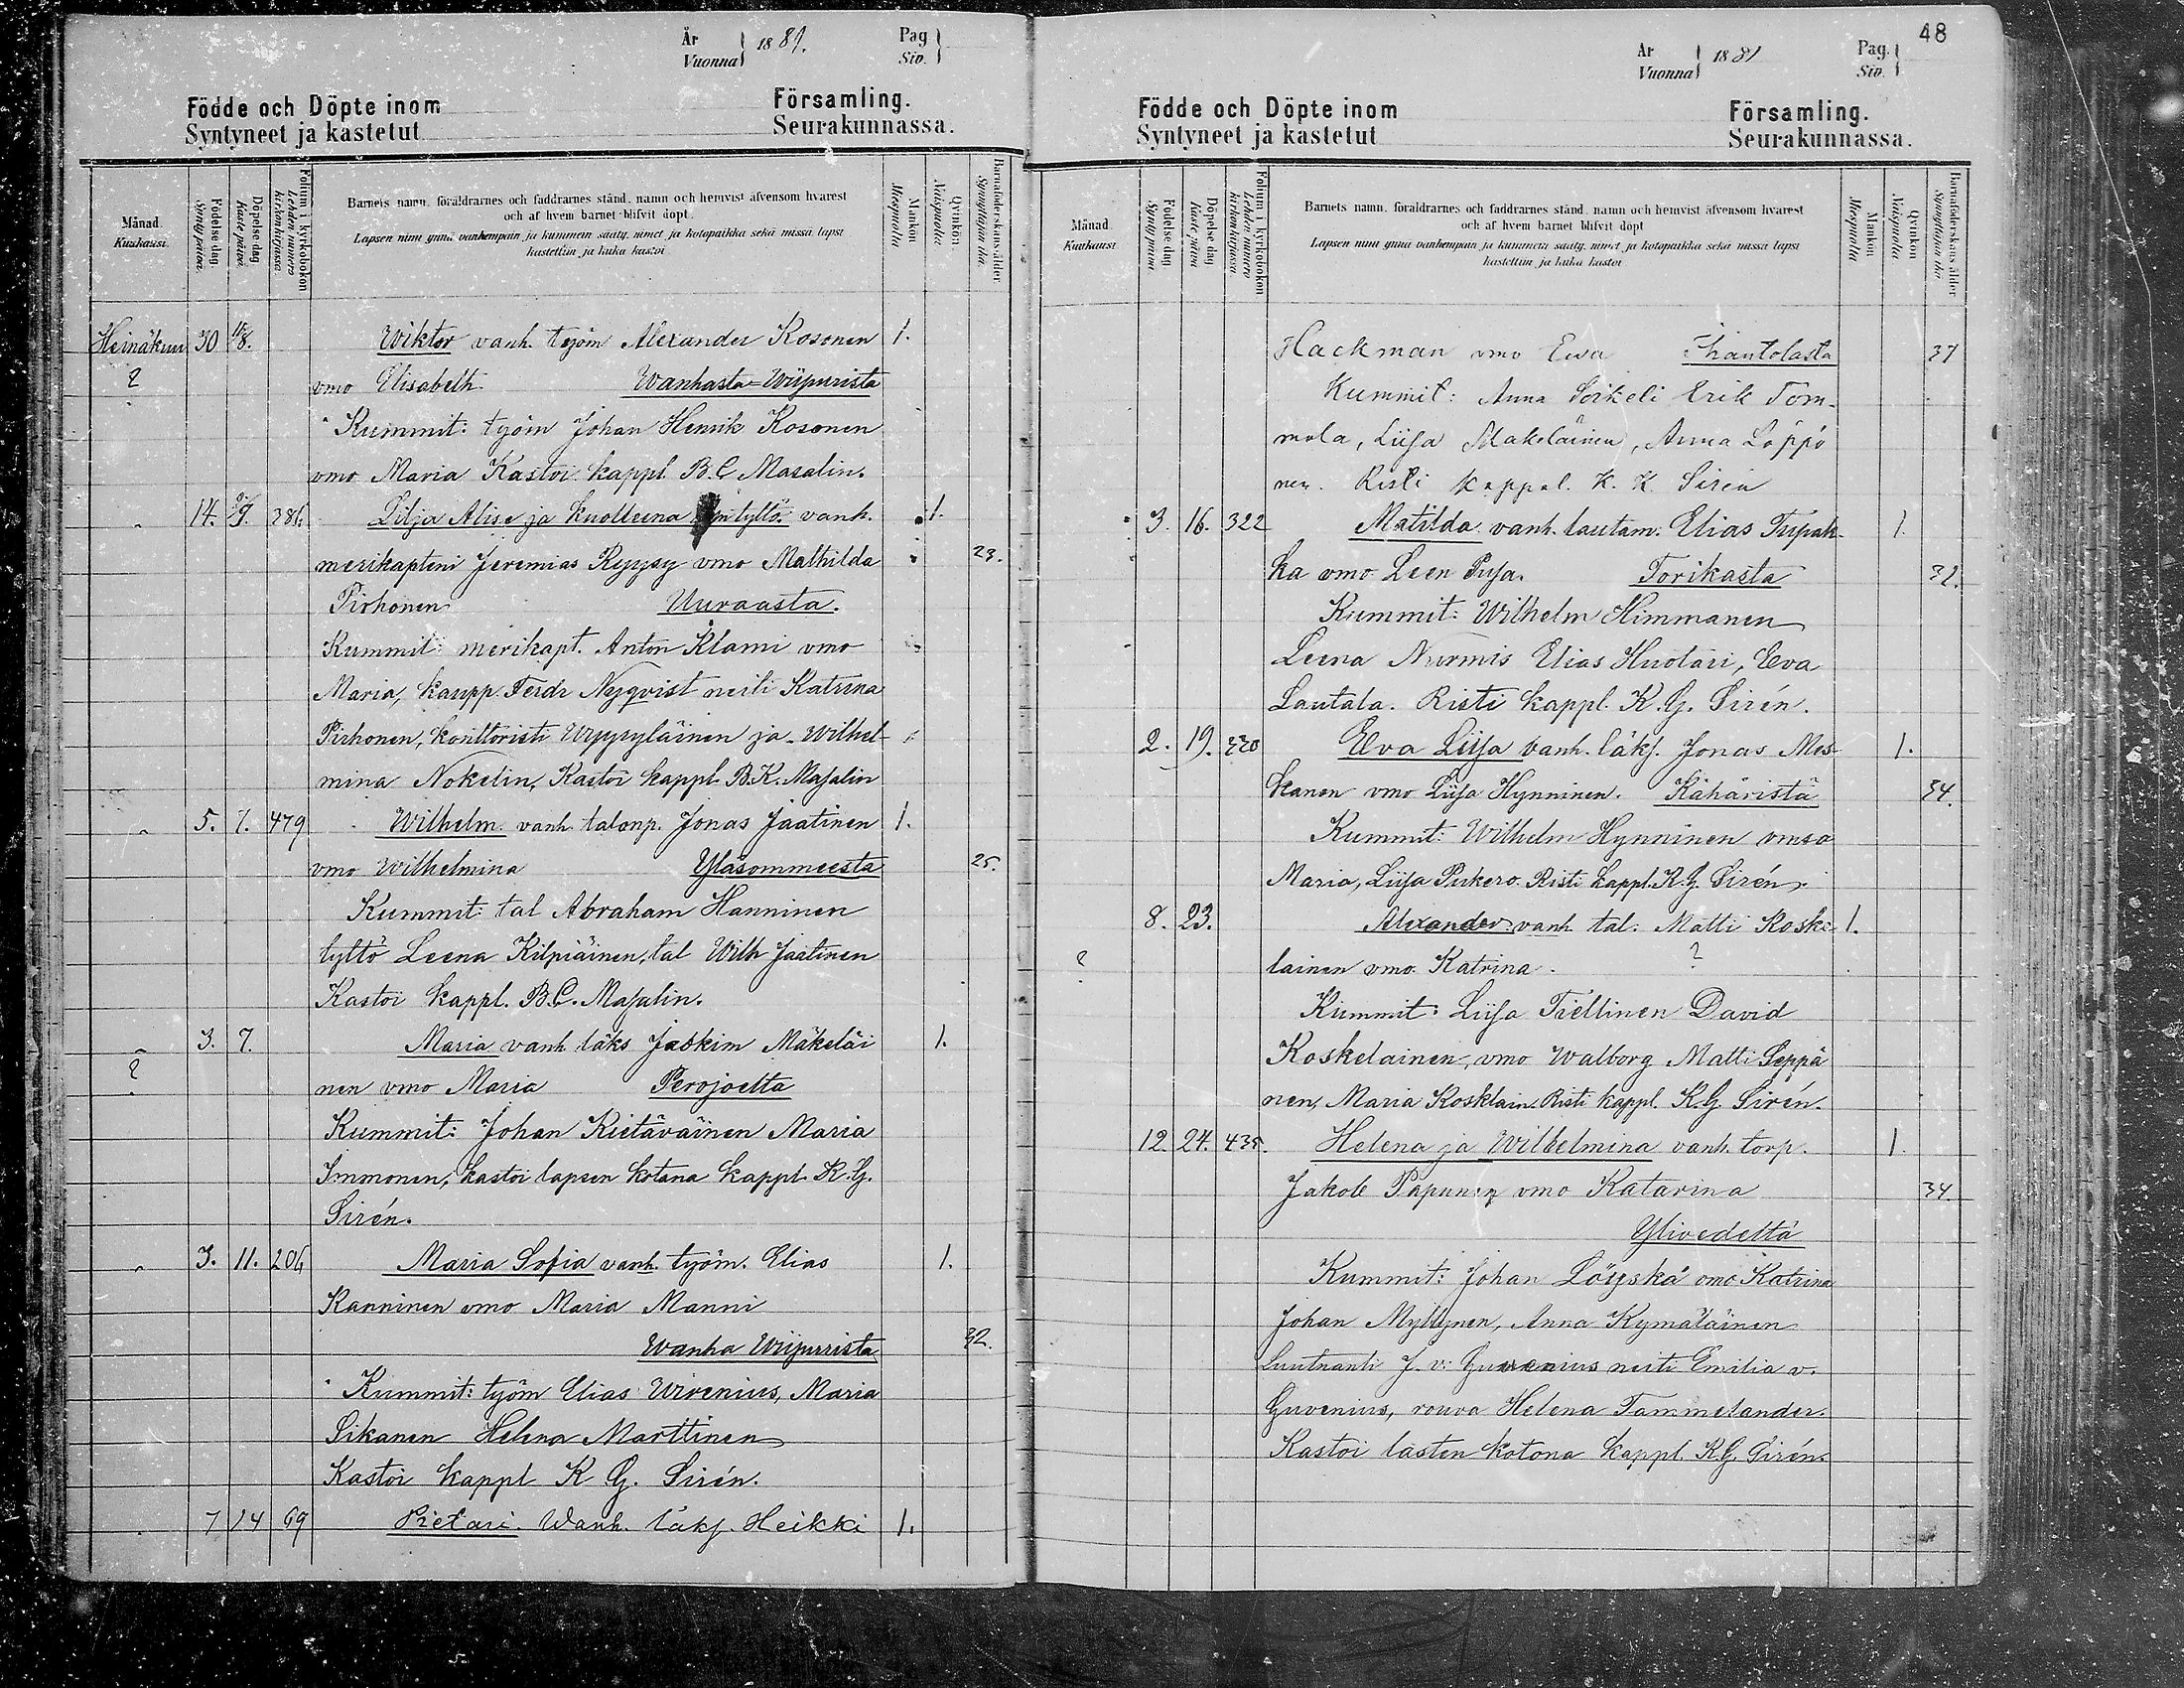 År
Vuonna
1881.
Pag
Siv.
Födde och Döpte inom
Församling.
Syntyneet ja kastetut
Seurakunnassa.
Månad.
Kuukausi.
Födelse dag.
Synty päivä.
Döpelse dag
Kaste päivä.
Folium i kyrkoboken
Lehden numero kirkonkirjassa.
Barnets namn, föräldrarnes och faddrarnes stånd, namn och hemvist äfvensom hvarest
och af hvem barnet blifvit döpt.
Lapsen nimi ynnä vanhempain ja kummein sääty, nimet ja kotopaikka sekä missä lapsi
kastettiin ja kuka kastoi
Mankön
Miespuolia
Qvinkön
Naispuolia
Barnaföderskans ålder
Synnyttäjän ikä.
Heinäkuu 30 11/8. Wiktor vanh. työm Alexander Kosonen 1.
? vmo Elisabeth Wanhasta-Wiipurista
Kummit: työm Johan Henrik Kosonen
vmo Maria Kastoi kappl. B. C Masalin.
" 14. 386. Lilja Alise ja kuolleena tyttö. vanh. 1.
merikapteni Jeremias Ryysy vmo Mathilda 23.
Pirhonen Uuraasta.
Kummit: merikapt. Anton Klami vmo
Maria, kaupp. Ferdr Nyqvist neiti Katrina
Pirhonen, konttoristi Urpyyläinen ja Wilhel-
mina Nokelin, Kastoi kappl. B. K. Masalin
" 5. 7. 479 Wilhelm vanh. talonp. Jonas Jaatinen 1.
vmo Wilhelmina Yläsommeesta 25.
Kummit: tal Abraham Hanninen
tyttö Leena Kilpiäinen, tal Wilh Jaatinen
Kastoi kappl. B. C. Masalin.
" 3. 7. Maria vanh läks Joakim Mäkeläi 1.
? nen vmo Maria Perojoelta
Kummit: Johan Kietäväinen Maria
Immonen, kastoi lapsen kotona kappl. K. G.
Sirén.
" 3. 11. 206 Maria Sofia vanh. työm. Elias 1.
Kanninen vmo Maria Manni
Wanha Wiipurista 32.
Kummit: työm Elias Wirenius, Maria
Sikanen Helena Marttinen
Kastoi kappl K G. Sirén.
7 14 69 Pietari. Wanh. läks. Heikki 1.
48
År
Vuonna
1881
Pag.
Siv.
Födde och Döpte inom
Församling.
Syntyneet ja kastetut
Seurakunnassa.
Månad.
Kuukausi
Födelse dag.
Synty päivä
Döpelse dag
Kaste päivä
Folium i kyrkoboken
Lehden numero kirkonkirjassa.
Barnets namn, föräldrarnes och faddrarnes stånd, namn och hemvist äfvensom hvarest
och af hvem barnet blifvit döpt
Lapsen nimi ynnä vanhempain ja kummein sääty, nimet ja kotopaikka sekä missä lapsi
kastettiin ja kuka kastoi
Mankön
Miespuolia
Qvinkön
Naispuolia
Barnaföderskans ålder
Synnyttäjän ikä
Hackman vmo Ewa Ihantolasta 37
Kummit: Anna Sorkeli Erik Tom-
mola, Liisa Makeläinen, Anna Löppö
nen. Risti kappal. K. K. Siren
3. 16. 322 Matilda vanh. lautam. Elias Tupak- 1.
ka vmo. Leen Pusa. Torikasta 32.
Kummit: Wilhelm Himmanen
Leena Nurmis Elias Huotari, Eeva
Lautala. Risti kappl. K. G. Sirén.
2. 19. 320 Eeva Liisa vanh. läks. Jonas Mes- 1.
kanen vmo Liisa Hynninen. Kähäristä 34.
Kummit: Wilhelm Hynninen vmso
Maria, Liisa Purkero. Risti kappl. K. G. Sirén.
8. 23. Alexander vanh. tal. Matti Koske- 1.
? lainen vmo. Katrina. ?
Kummit: Liisa Tiellinen David
Koskelainen, vmo Walborg Matti Seppä
nen, Maria Kosklain. Risti kappl. K. G Sirén.
12. 24. 435. Helena ja Wilhelmina vanh. torp. 1
Jakob Papunen vmo Katarina 34.
Ylivedeltä
Kummit: Johan Löyskä vmo Katrina
Johan Myllynen, Anna Kymäläinen
Luutnanti J. v. Guvenius neiti Emilia v.
Guvenius, rouva Helena Tammelander.
Kastoi lasten kotona kappl. K. G. Sirén.